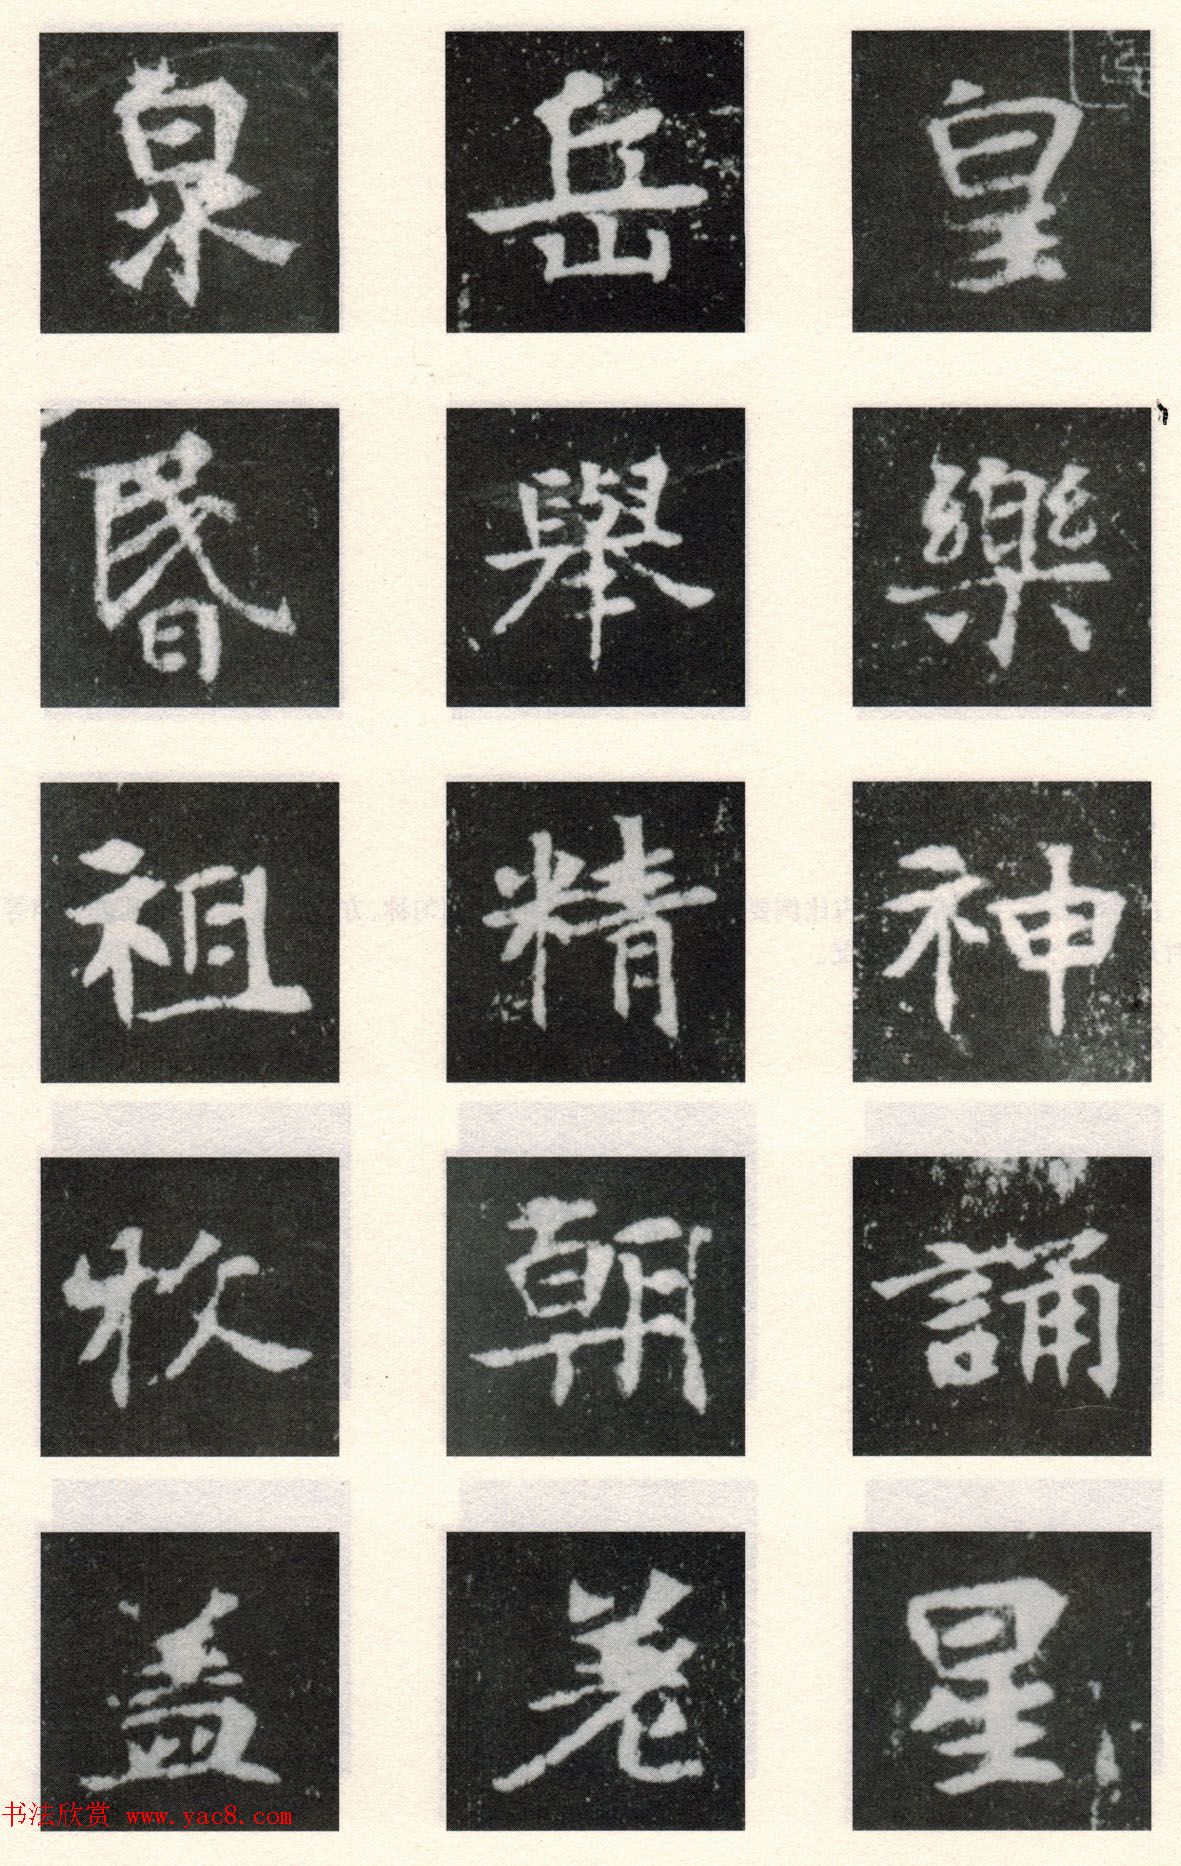 皇岳泉
樂舉昬
神精祖
誦朝牧
星盖
书法欣赏 www.yac8.com